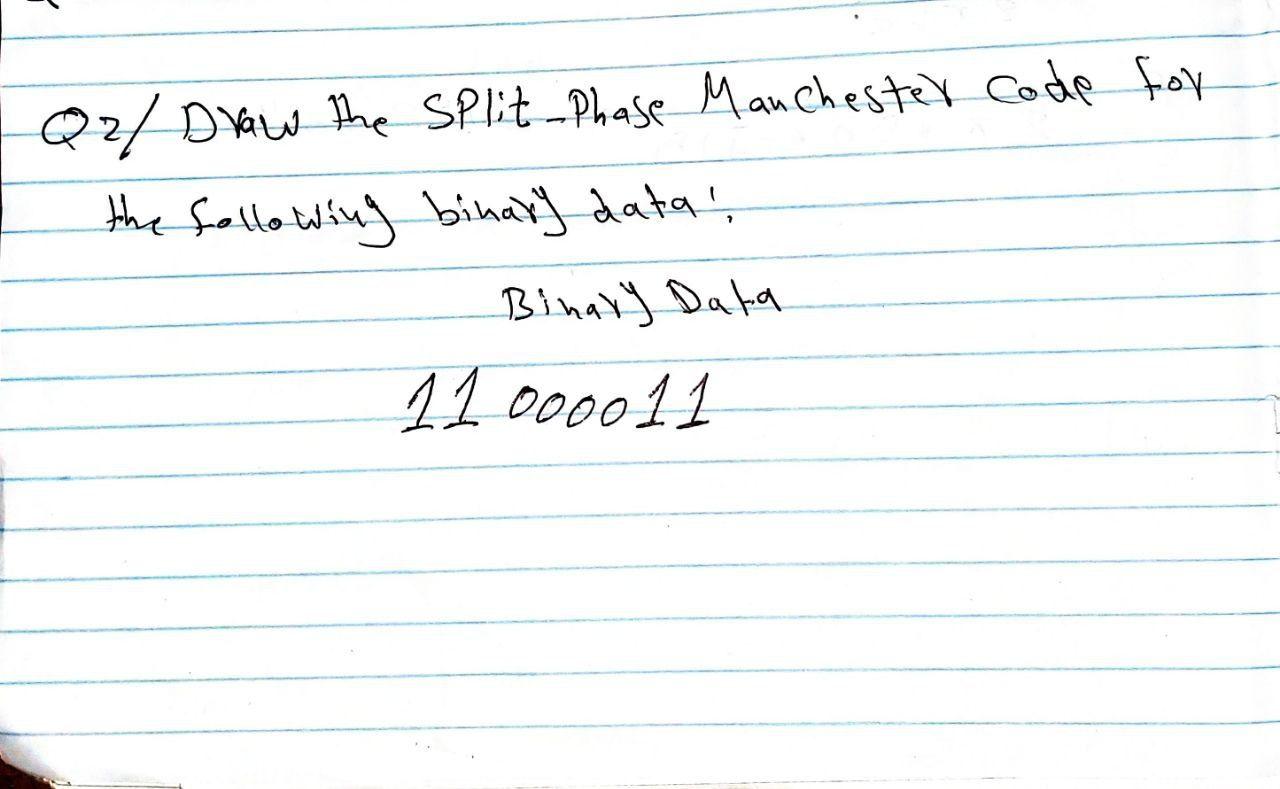 Q2/ Draw the Split-Phase Manchester Code for
the following binary data:
Binary Data
11 000011